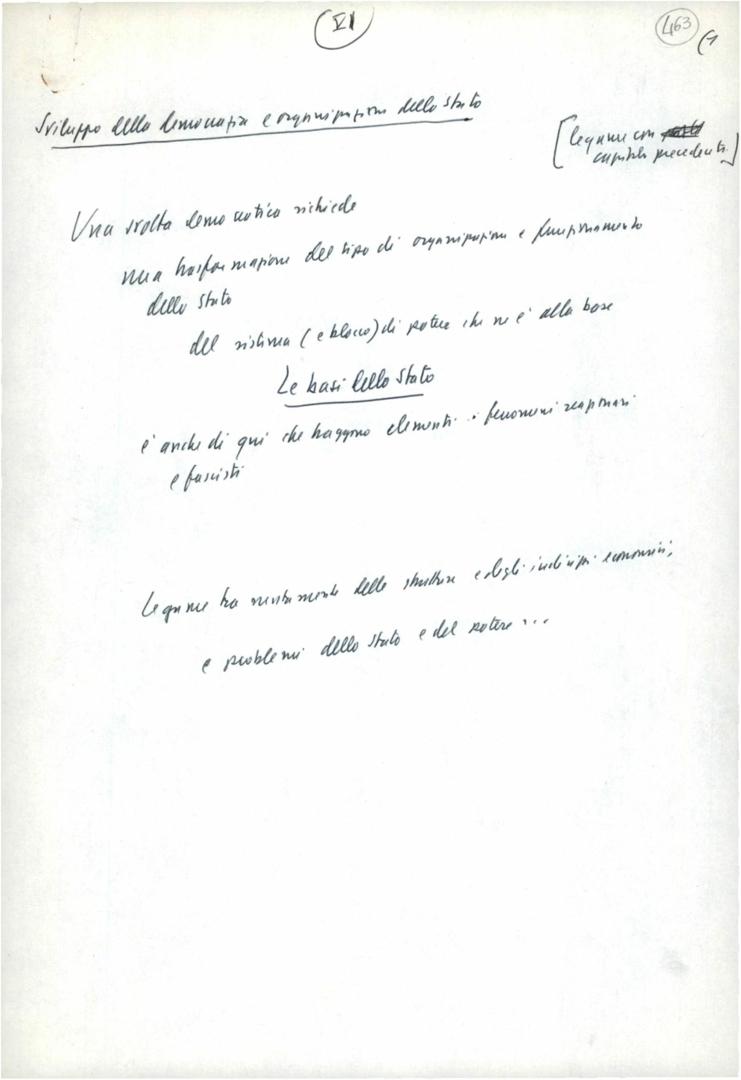 VI
463
(1
Sviluppo della democrazia e organizzazione dello Stato
[legame con
capitolo precedente]
Una svolta democratica richiede
una trasformazione del tipo di organizzazione e funzionamento
dello Stato
del sistema (e blocco) di potere che ne è alla base
Le basi dello Stato
è anche di qui che traggono elementi i fenomeni reazionari
e fascisti
Legame tra mutamento delle strutture e degli indirizzi economici,
e problemi dello Stato e del potere ...